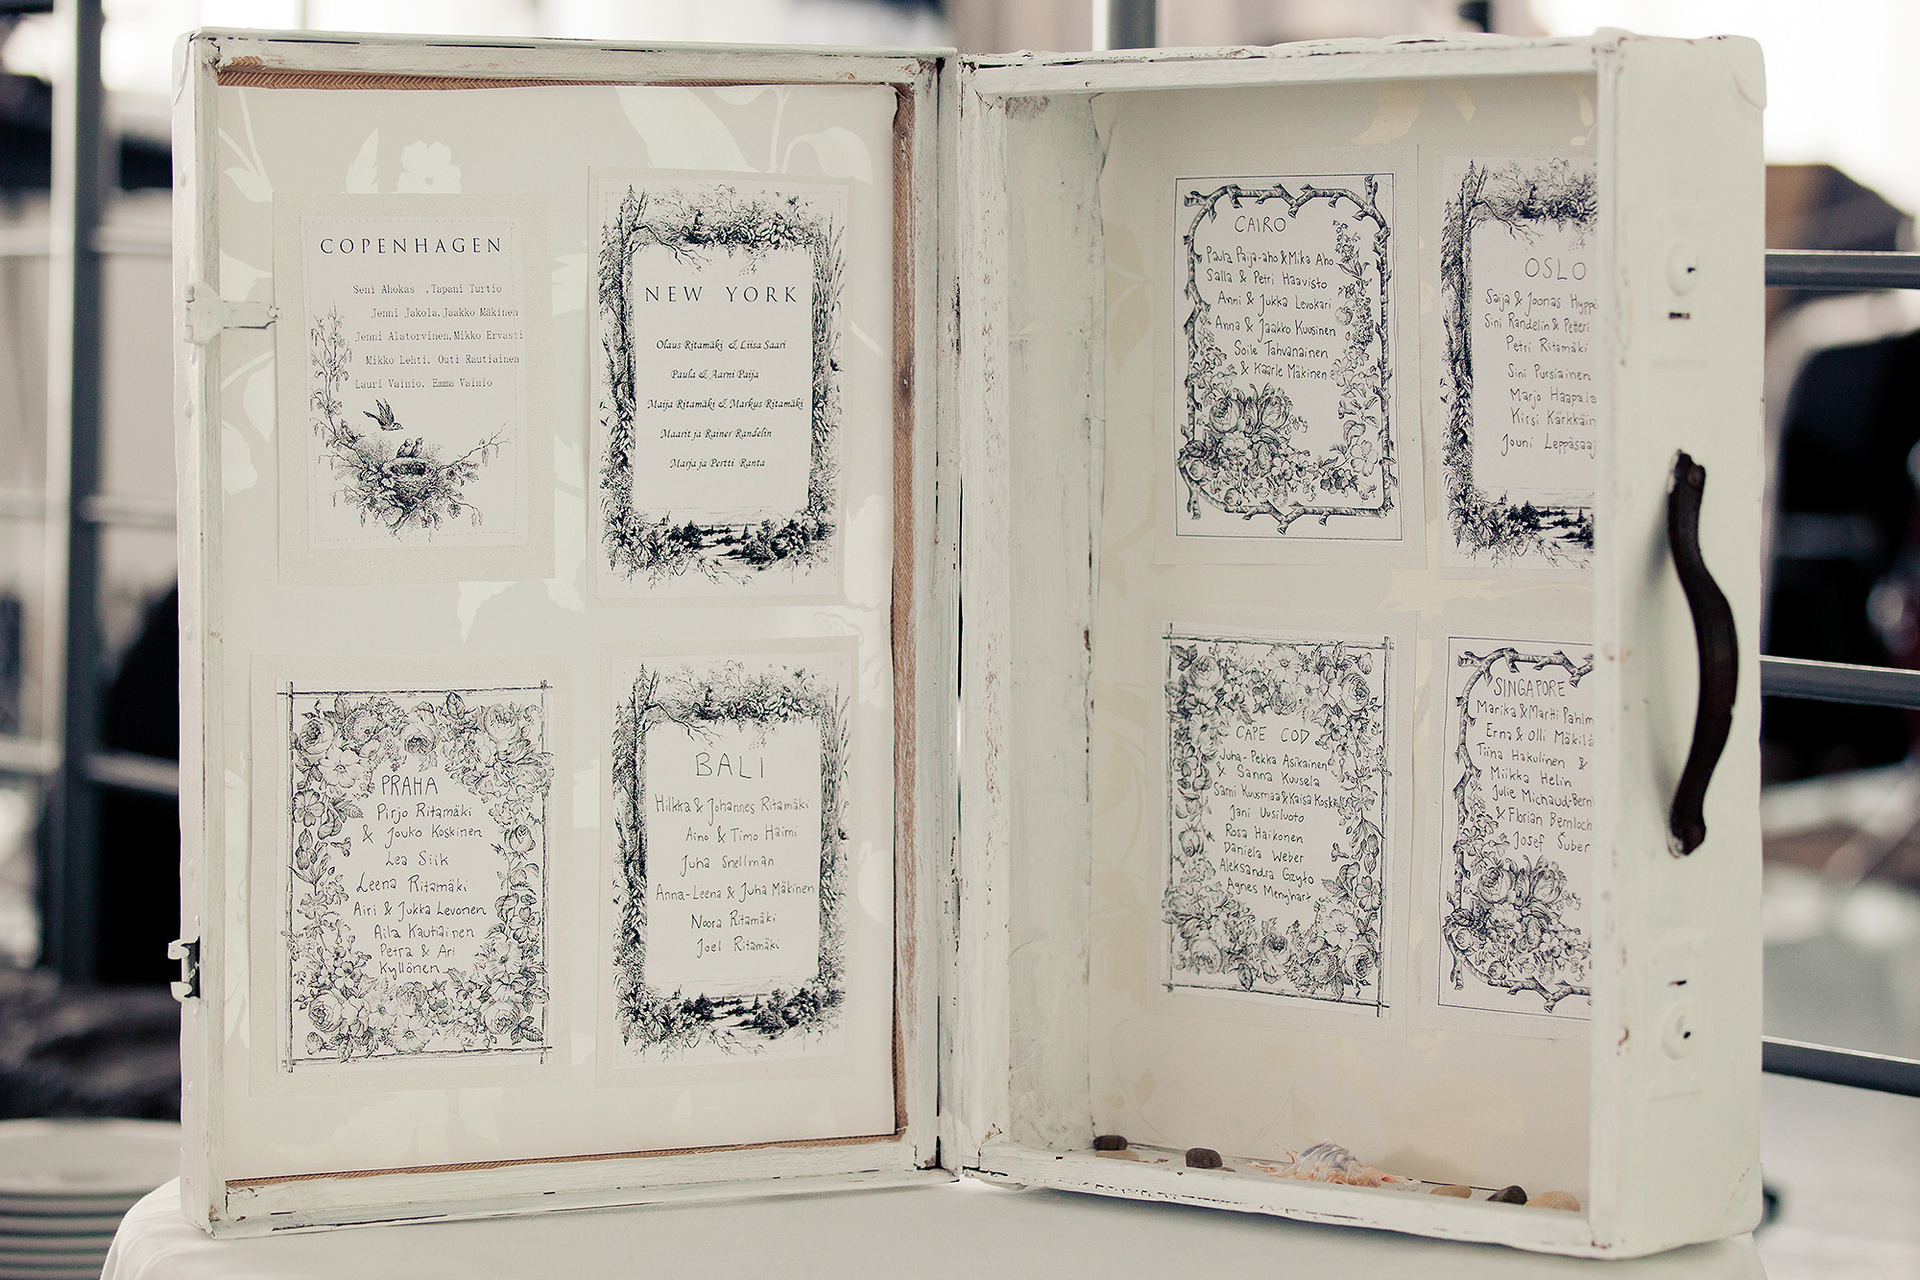 COPENHAGEN
Seni Ahokas .Tapani Turtio
Jenni Jakola.Jaakko Mäkinen
Jenni Alatorvinen.Mikko Ervasti
Mikko Lehti. Outi Rautiainen
Lauri Vainio. Emma Vainio
NEW YORK
Olaus Ritamäki & Liisa Saari
Paula & Aarni Paija
Maija Ritamäki & Markus Ritamäki
Maarit ja Rainer Randelin
Marja ja Pertti Ranta
PRAHA
Pirjo Ritamäki
& Jouko Koskinen
Lea Siik
Leena Ritamäki
Airi & Jukka Levonen
Aila Kautiainen
Petra & Ari
Kyllönen
BALI
Hilkka & Johannes Ritamäki
Aino & Timo Haimi
Juha Snellman
Anna-Leena & Juha Mäkinen
Noora Ritamäki
Joel Ritamäki
CAIRO
Paula Paija-aho & Mika Aho
Salla & Petri Haavisto
Anni & Jukka Levokari
Anna & Jaakko Kuusinen
Soile Tahvanainen
& Kaarle Mäkinen
OSLO
Saija & Joonas Hyppö
Sini Randelin & Peteri
Petri Ritamäki
Sini Pursiainen
Marjo Haapala
Kirsi Kärkkäin
Jouni Leppäsaaj
CAPE COD
Juha-Pekka Asikainen
& Sanna Kuusela
Sami Kuusmaa & Kaisa Koske
Jani Uusiluoto
Rosa Haikonen
Daniela Weber
Aleksandra Gzyto
Agnes Menyhart
SINGAPORE
Marika & Martti Pahlm
Erna & Olli Mäkilä
Tiina Hakulinen &
Miikka Helin
Julie Michaud-Bernl
& Florian Bernloch
Josef Suber